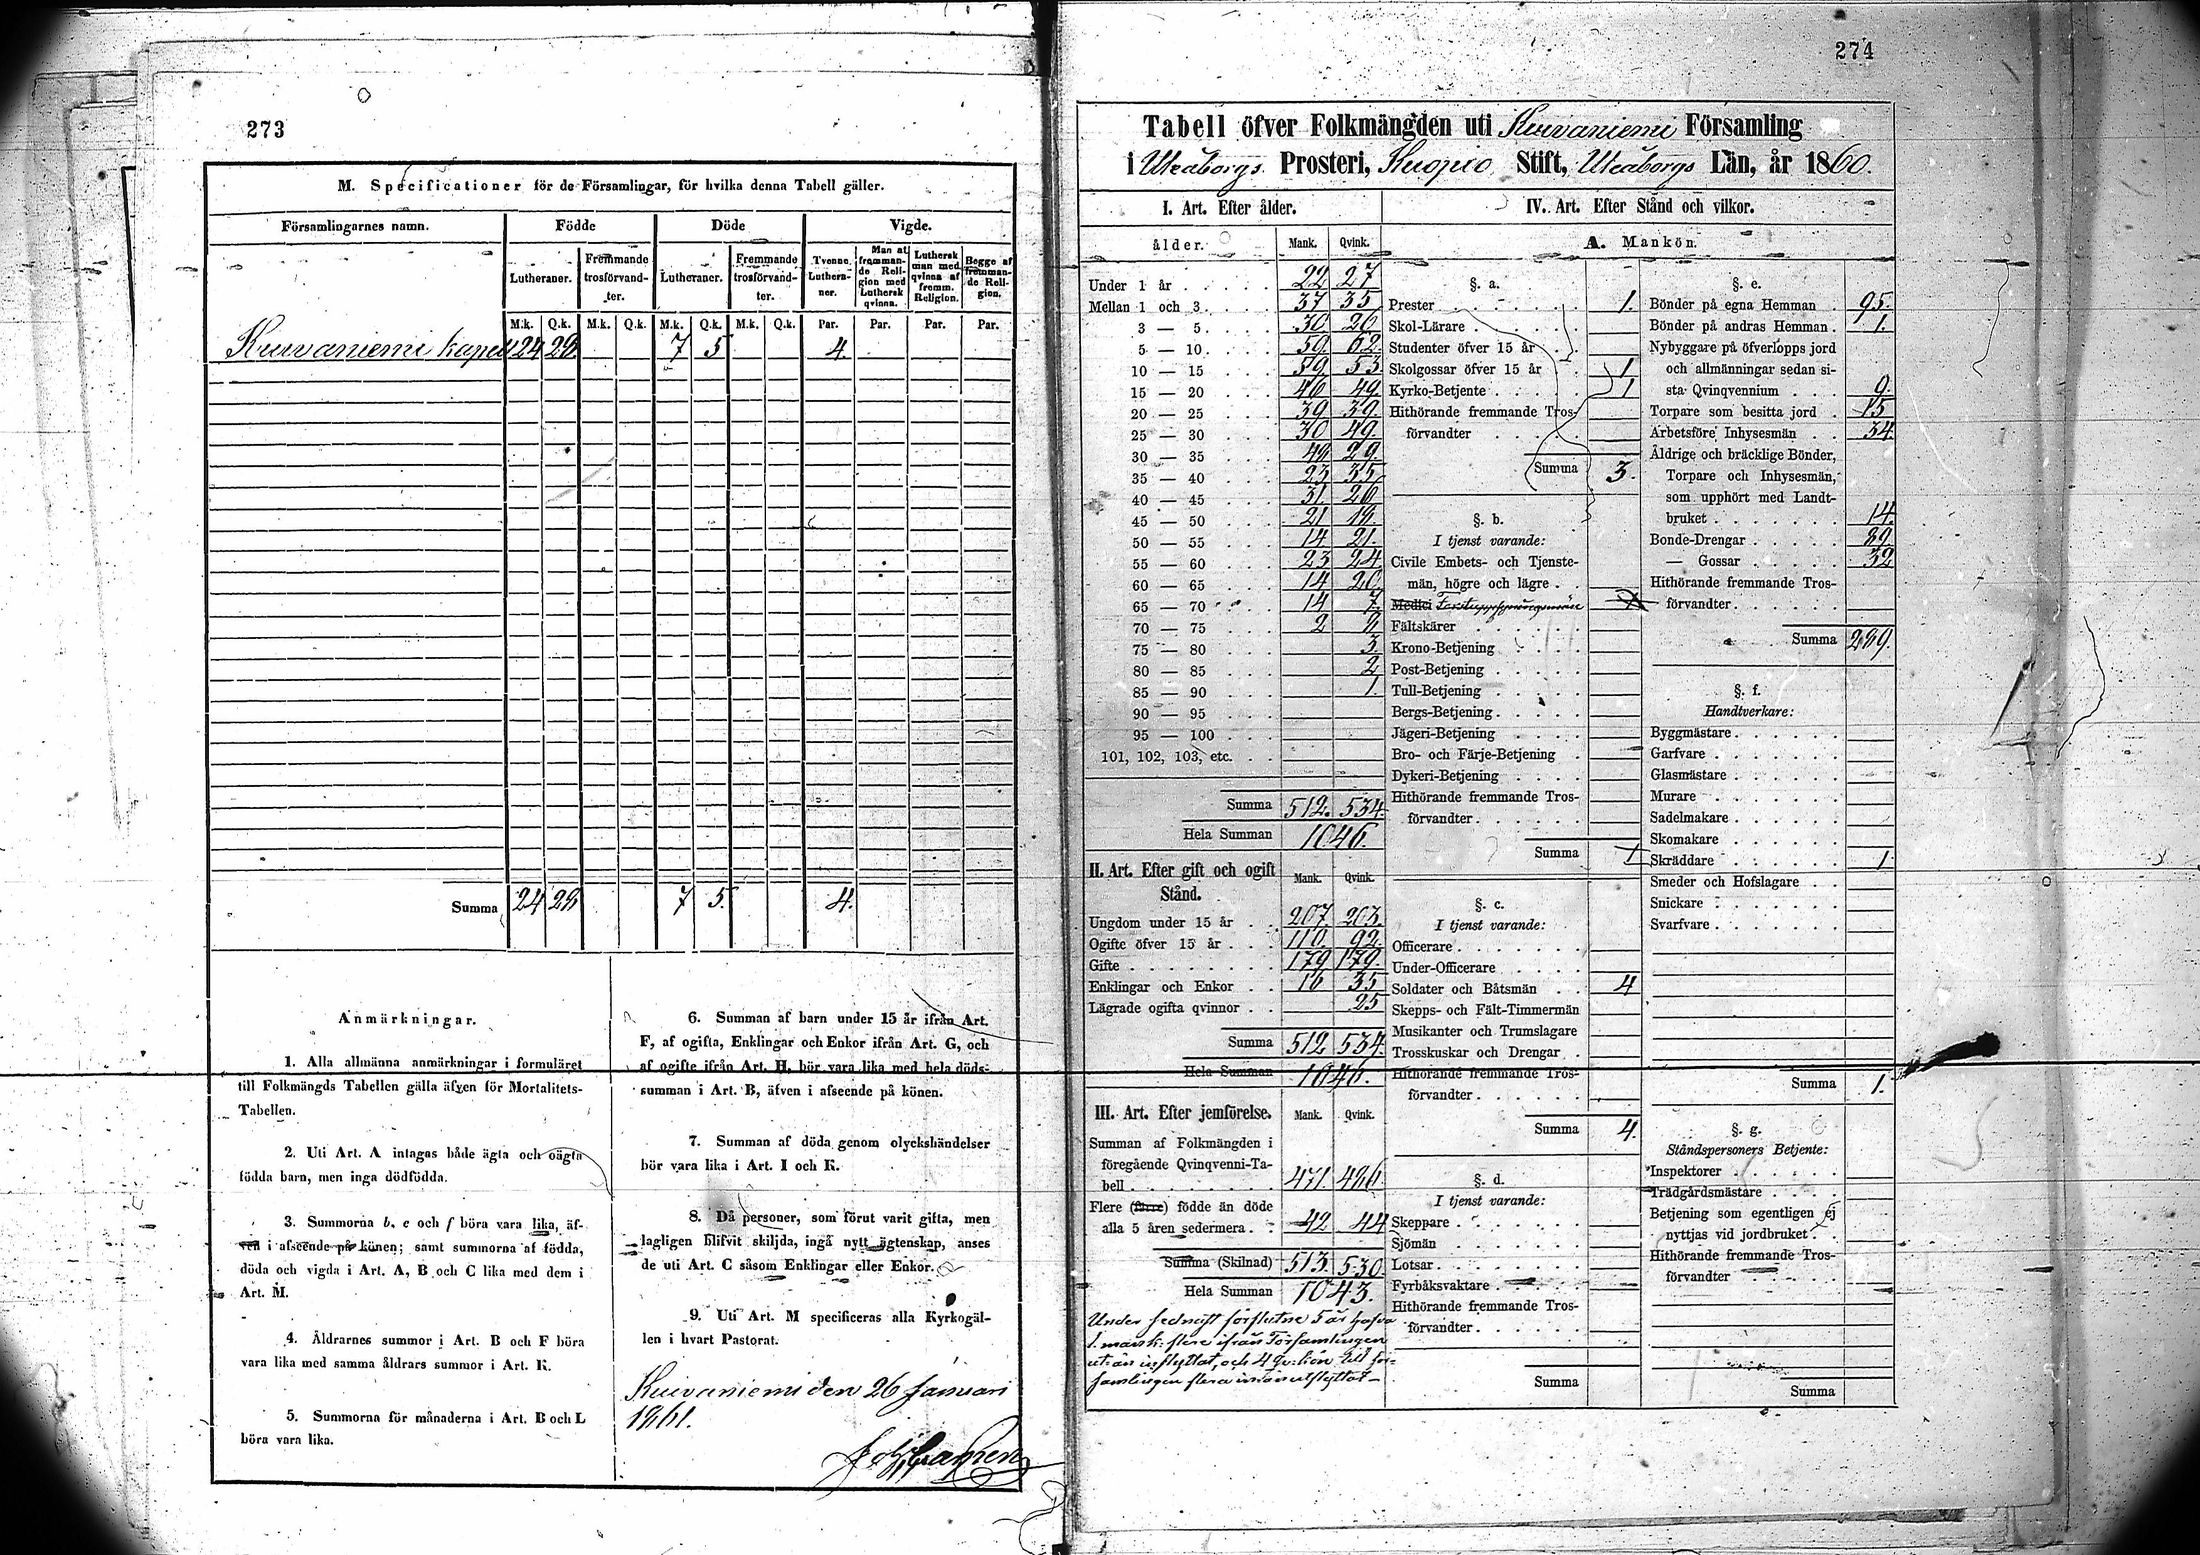 273
M. Specificationer för de Församlingar, för hvilka denna Tabell gäller.
Församlingarnes namn. Födde Döde Vigde.
Lutheraner. Fremmande trosförvandter. Lutheraner. Fremmande trosförvandter. Tvenne Lutheraner. Man af fremmande Religion med Luthersk qvinna. Luthersk man med qvinna af fremm. Religion. Begge af fremmande Religion.
M.k. Q.k. M.k. Q.k. M.k. Q.k. M.k. Q.k. Par. Par. Par. Par.
Kuivaniemi kapell 24 28 7 5 4.
Summa 24 28 7 5. 4.
Anmärkningar.
1. Alla allmänna anmärkningar i formuläret
till Folkmängds Tabellen gälla äfven för Mortalitets-
Tabellen.
2. Uti Art. A intagas både ägta och oägta
födda barn, men inga dödfödda.
3. Summorna b, e och f böra vara lika, äf-
ven i afseende på könen; samt summorna af födda,
döda och vigda i Art. A, B och C lika med dem i
Art. M.
4. Åldrarnes summor i Art. B och F böra
vara lika med samma åldrars summor i Art. K.
5. Summorna för månaderna i Art. B och L
böra vara lika.
6. Summan af barn under 15 år ifrån Art.
F, af ogifta, Enklingar och Enkor ifrån Art. G, och
af ogifte ifrån Art. H, bör vara lika med hela döds-
summan i Art. B, äfven i afseende på könen.
7. Summan af döda genom olyckshändelser
bör vara lika i Art. I och K.
8. Då personer, som förut varit gifta, men
lagligen blifvit skiljda, ingå nytt ägtenskap, anses
de uti Art. C såsom Enklingar eller Enkor.
9. Uti Art. M specificeras alla Kyrkogäl-
len i hvart Pastorat.
Kuivaniemi den 26 Januari
1861.
274
Tabell öfver Folkmängden uti Kuivaniemi Församling
i Uleåborgs Prosteri, Kuopio Stift, Uleåborgs Län, år 1860.
I. Art. Efter ålder.
ålder. Mank. Qvink.
Under 1 år 22 27
Mellan 1 och 3 37 35
3 — 5 30 26
5 — 10 59. 62.
10 — 15 59 53
15 — 20 46 49.
20 — 25 39 39.
25 — 30 30 49.
30 — 35 48 29.
35 — 40 23 35
40 — 45 31 26
45 — 50 21 18.
50 — 55 14 21.
55 — 60 23 24
60 — 65 14 20
65 — 70 14 7
70 — 75 2
75 — 80 3
80 — 85 2
85 — 90 1.
90 — 95
95 — 100
101, 102, 103, etc.
Summa 512. 534
Hela Summan 1046.
II. Art. Efter gift och ogift Stånd. Mank. Qvink.
Ungdom under 15 år 207. 203.
Ogifte öfver 15 år 110. 92.
Gifte 179 179.
Enklingar och Enkor 16 35
Lägrade ogifta qvinnor 25
Summa 512 534.
Hela Summan 1046.
III. Art. Efter jemförelse. Mank. Qvink.
Summan af Folkmängden i
föregående Qvinqvenni-Ta-
bell 471. 486
Flere (färre) födde än döde
alla 5 åren sedermera 42 44
Summa (Skilnad) 513. 530.
Hela Summan 1043.
Under sednast förflutne 5 år hafva
1. mank: flere ifrån Församlingen
ut än inflyttat, och 4 Qv:kön till för-
samlingen flera in än utflyttat—
IV. Art. Efter Stånd och vilkor.
A. Mankön.
§. a.
Prester 1.
Skol-Lärare
Studenter öfver 15 år
Skolgossar öfver 15 år 1
Kyrko-Betjente 1
Hithörande fremmande Tros-
förvandter
Summa 3.
§. b.
I tjenst varande:
Civile Embets- och Tjenste-
män, högre och lägre
Medici
Fältskärer
Krono-Betjening
Post-Betjening
Tull-Betjening
Bergs-Betjening
Jägeri-Betjening
Bro- och Färje-Betjening
Dykeri-Betjening
Hithörande fremmande Tros-
förvandter
Summa 1
§. c.
I tjenst varande:
Officerare
Under-Officerare
Soldater och Båtsmän 4
Skepps- och Fält-Timmermän
Musikanter och Trumslagare
Trosskuskar och Drengar
Hithörande fremmande Tros-
förvandter
Summa 4.
§. d.
I tjenst varande:
Skeppare
Sjömän
Lotsar
Fyrbåksvaktare
Hithörande fremmande Tros-
förvandter
Summa
§. e.
Bönder på egna Hemman 95.
Bönder på andras Hemman 1.
Nybyggare på öfverlopps jord
och allmänningar sedan si-
sta Qvinqvennium 9.
Torpare som besitta jord 15
Arbetsföre Inhysesmän 34.
Äldrige och bräcklige Bönder,
Torpare och Inhysesmän,
som upphört med Landt-
bruket 14.
Bonde-Drengar 89.
— Gossar 32
Hithörande fremmande Tros-
förvandter
Summa 289.
§. f.
Handtverkare:
Byggmästare
Garfvare
Glasmästare
Murare
Sadelmakare
Skomakare
Skräddare 1
Smeder och Hofslagare
Snickare
Svarfvare
Summa 1.
§. g.
Ståndspersoners Betjente:
Inspektorer
Trädgårdsmästare
Betjening som egentligen ej
nyttjas vid jordbruket
Hithörande fremmande Tros-
förvandter
Summa